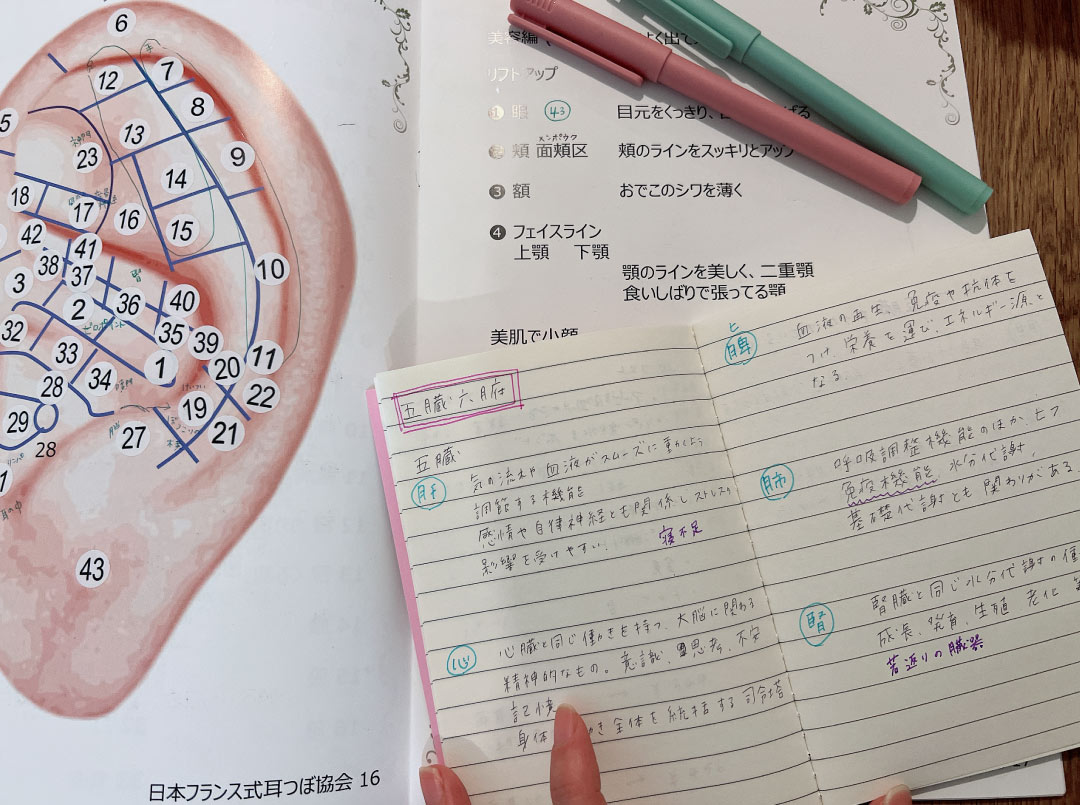 6
12
7
8
5
13
23
9
14
18
17
16
15
42
41
38
37
10
3
36
40
2
ゼロポイント
35
39
32
33
1
11
34
20
28
22
19
29
28
27
21
43
日本フランス式耳つぼ協会 16
美容編
よく出て
リフトアップ
1 眼 43 目元をくっきり、
メンボウク
2 頬 面頬区 頬のラインをスッキリとアップ
3 額 おでこのシワを薄く
4 フェイスライン
上顎 下顎
顎のラインを美しく、二重顎
食いしばりで張ってる顎
美肌で小顔
五臓六腑
五臓
肝 気の流れや血液がスムーズに動くよう
調節する機能
感情や自律神経とも関係しストレスの
影響を受けやすい. 寝不足
心 心臓と同じ働きを持つ、大脳に関わる
精神的なもの。意識、思考、不安
記憶
身体 き全体を統括する司令塔
ヒ
脾 血液の再生、免疫や抗体を
つけ、栄養を運び、エネルギー源と
なる.
肺 呼吸調整機能のほか、ヒフ
免疫機能、水分代謝、
基礎代謝とも関わりがある
腎 腎臓と同じ水分代謝の働
成長、発育、生殖 老化
若返りの臓器